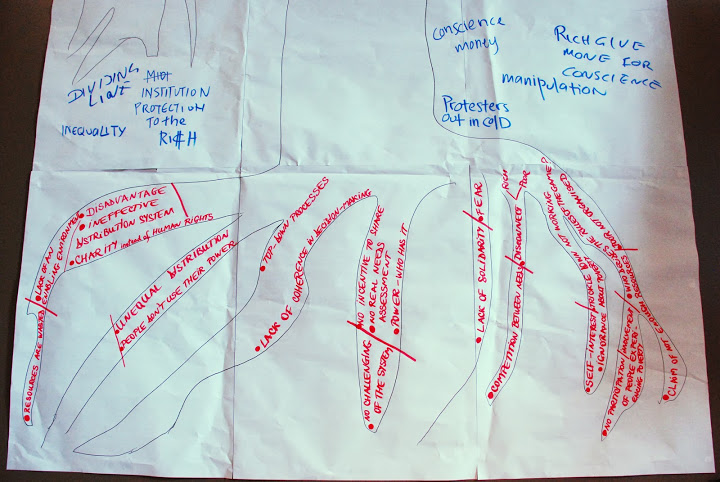 CONSCIENCE
MONEY
RICH GIVE
MONE FOR
CONSCIENCE
manipulation
Protesters
out in COLD
DIVIDING
INSTITUTION
PROTECTION
TO the
RI$H
INEQUALITY
• LACK OF AN
ENABLING ENVIRONMENT
• DISADVANTAGE
• INEFFECTIVE
DISTRIBUTION SYSTEM
• CHARITY instead of HUMAN RIGHTS
• RESOURCES ARE WASTED
• UNEQUAL DISTRIBUTION
• PEOPLE DON'T USE THEIR POWER
• TOP-DOWN PROCESSES
• LACK OF COHERENCE IN DECISION-MAKING
NO INCENTIVE TO SHARE
• NO REAL NEEDS
ASSESSMENT
• POWER - WHO HAS IT
• NO CHALLENGING
OF THE SYSTEM
• FEAR
• LACK OF SOLIDARITY
RICH
POOR
DISCONNECT
• COMPETITION BETWEEN NEEDS
NOT WORKING
• SELF-INTEREST
• IGNORANCE ABOUT POVERTY
WHO MAKES THE RULES OF THE GAME?
POOR NOT ORGANISED
• NO PARTICIPATION
OF PEOPLE EXPERI-
ENCING POVERTY
• CLAIM OF NOT ENOUGH RESOURCES